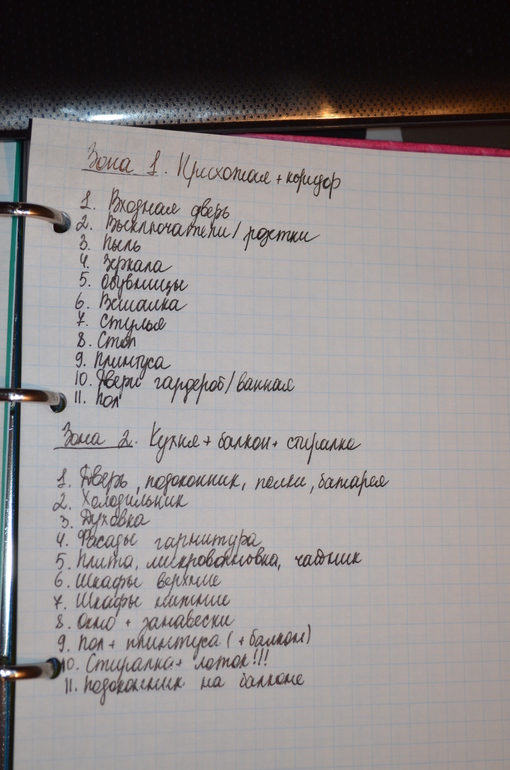 Зона 1. Прихожая + коридор
1. Входная дверь
2. Выключатели / розетки
3. Пыль
4. Зеркала
5. Обувницы
6. Вешалка
7. Стулья
8. Стол
9. Плинтуса
10. Двери гардероб/ванная
11. Пол
Зона 2. Кухня + балкон + стиралка
1. Дверь, подоконник, полки, батарея
2. Холодильник
3. Духовка
4. Фасады гарнитура
5. Плита, микроволновка, чайник
6. Шкафы верхние
7. Шкафы нижние
8. Окно + занавески
9. Пол + плинтуса (+ балкон)
10. Стиралка + лоток!!!
11. Подоконник на балконе